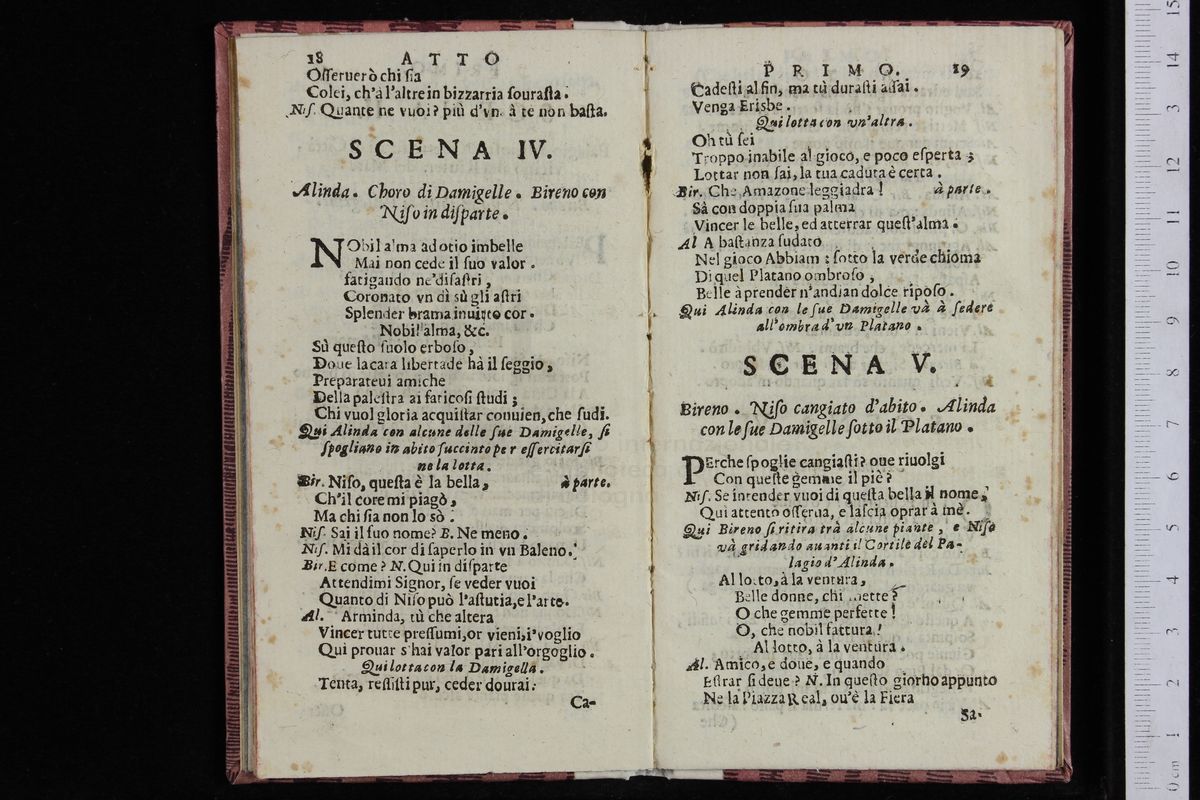 18 ATTO
Oſſeruerò chi ſia
Colei, ch'à l'altre in bizzarria ſouraſta.
Niſ. Quante ne vuoi? più d'vn. à te non baſta.
SCENA IV.
Alinda. Choro di Damigelle. Bireno con
Niſo in diſparte.
NObil alma ad otio imbelle
Mai non cede il ſuo valor.
fatigando ne'diſaſtri,
Coronato vn dì sù gli aſtri
Splender brama inuitto cor.
Nobil alma, &c.
Sù queſto ſuolo erboſo,
Doue la cara libertade hà il ſeggio,
Preparateui amiche
Della paleſtra ai faticoſi ſtudi;
Chi vuol gloria acquiſtar conuien, che ſudi.
Qui Alinda con alcune delle ſue Damigelle, ſi
ſpogliano in abito ſuccinto per eſſercitarſi
ne la lotta.
Bir. Niſo, queſta è la bella, à parte.
Ch'il core mi piagò,
Ma chi ſia non lo sò.
Niſ. Sai il ſuo nome? B. Ne meno.
Niſ. Mi dà il cor di ſaperlo in vn Baleno.
Bir. E come? N. Qui in diſparte
Attendimi Signor, ſe veder vuoi
Quanto di Niſo può l'aſtutia, e l'arte.
Al. Arminda, tù che altera
Vincer tutte preſſumi, or vieni, i'voglio
Qui prouar s'hai valor pari all'orgoglio.
Qui lotta con la Damigella.
Tenta, reſiſti pur, ceder dourai.
Ca-
PRIMO. 19
Cadeſti al fin, ma tù duraſti aſſai.
Venga Erisbe.
Qui lotta con vn'altra.
Oh tù ſei
Troppo inabile al gioco, e poco eſperta;
Lottar non ſai, la tua caduta è certa.
Bir. Che Amazone leggiadra! à parte.
Sà con doppia ſua palma
Vincer le belle, ed atterrar queſt'alma.
Al A baſtanza ſudato
Nel gioco Abbiam: ſotto la verde chioma
Di quel Platano ombroſo,
Belle à prender n'andian dolce ripoſo.
Qui Alinda con le ſue Damigelle và à ſedere
all'ombra d'vn Platano.
SCENA V.
Bireno. Niſo cangiato d'abito. Alinda
con le ſue Damigelle ſotto il Platano.
PErche ſpoglie cangiaſti? oue riuolgi
Con queſte gemme il piè?
Niſ. Se intender vuoi di queſta bella il nome,
Qui attento oſſerua, e laſcia oprar à mè.
Qui Bireno ſi ritira trà alcune piante, e Niſo
và gridando auanti il Cortile del Pa-
lagio d'Alinda.
Al lotto, à la ventura,
Belle donne, chi mette?
O che gemme perfette!
O, che nobil fattura!
Al lotto, à la ventura.
Al. Amico, e doue, e quando
Eſtrar ſi deue? N. In queſto giorno appunto
Ne la Piazza Real, ou'è la Fiera
Sa-